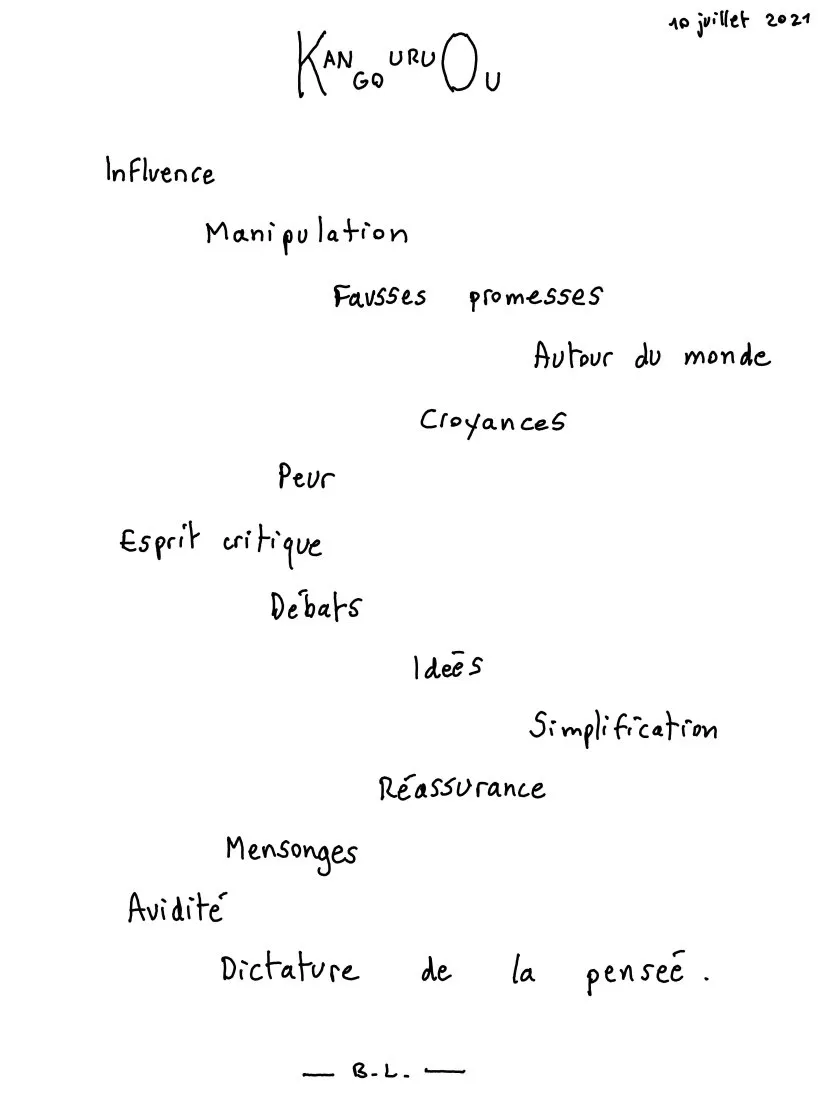 10 juillet 2021
KANGOURUOU
Influence
Manipulation
Fausses promesses
Autour du monde
Croyances
Peur
Esprit critique
Débats
Ideés
Simplification
Réassurance
Mensonges
Avidité
Dictature de la penseé.
— B.L. —